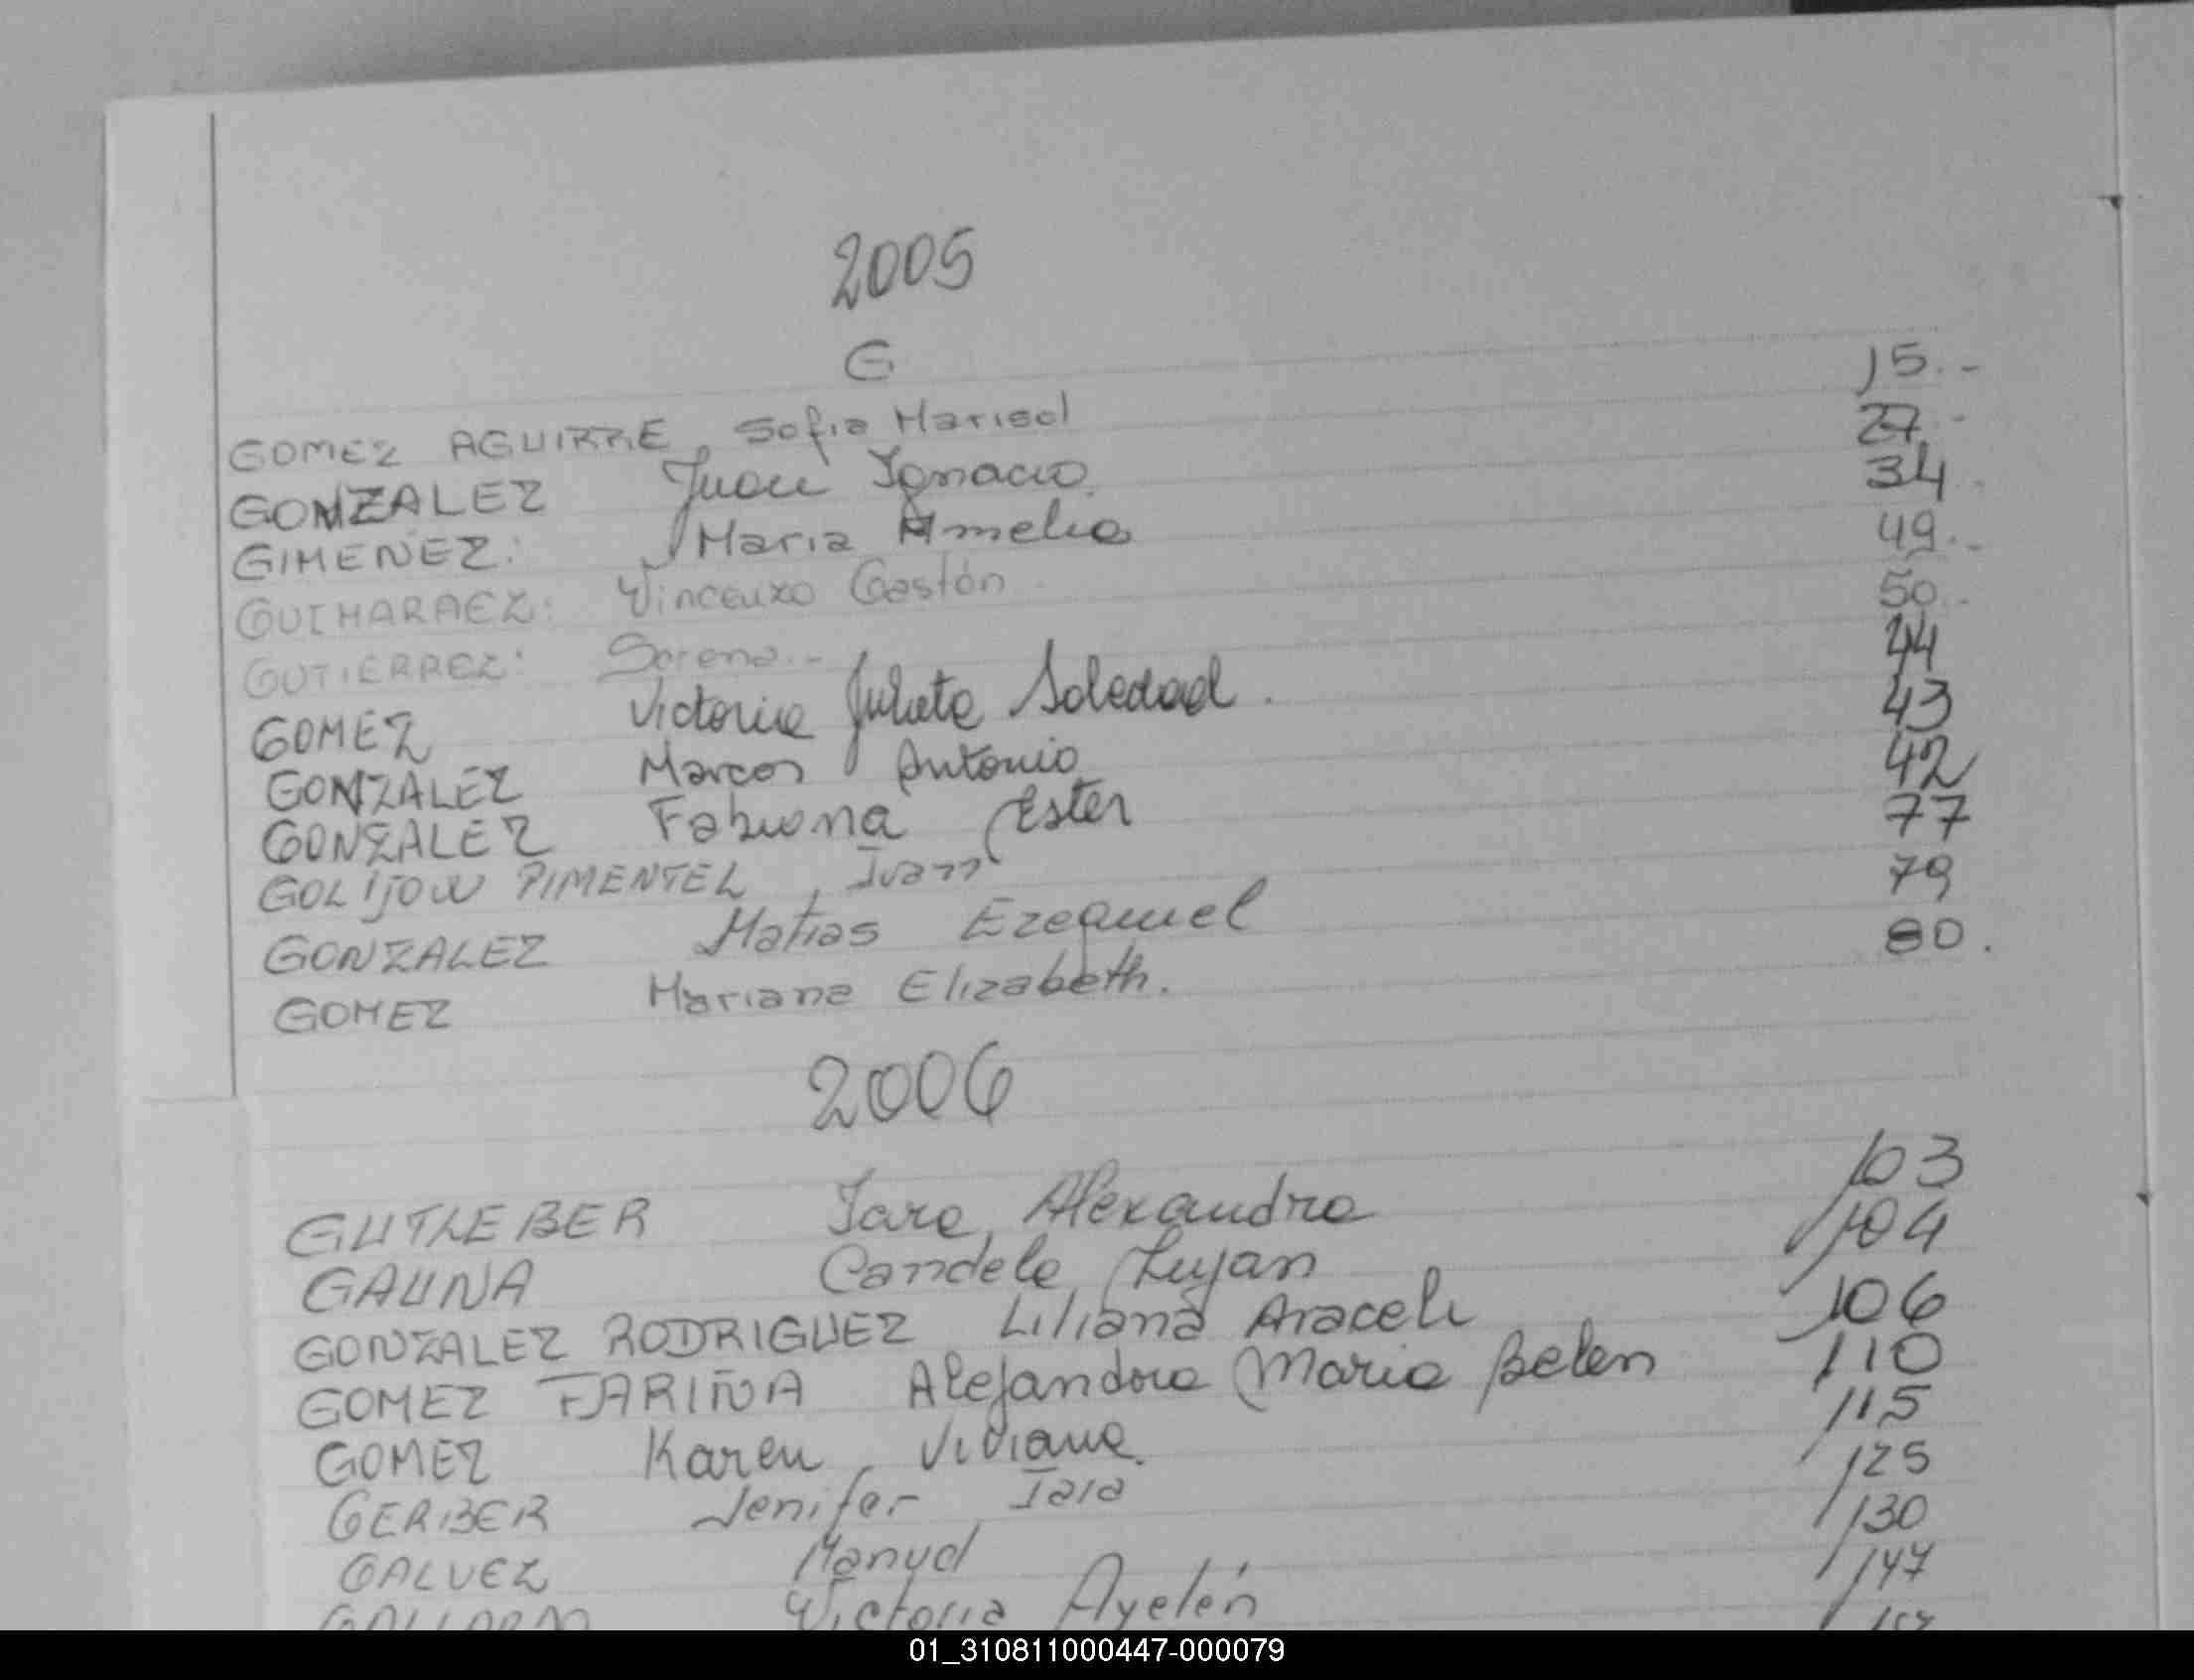 2005
G
GOMEZ AGUIRRE, Sofia Marisol 15.-
GONZALEZ Juan Ignacio. 27.-
GIMENEZ: Maria Amelia 34.
GUIMARAEZ: Vincenzo Gastón 49.-
GUTIERREZ: Sorena.- 50.-
GOMEZ Victoria Julieta Soledad. 44
GONZALEZ Marcos Antonio 43
GONZALEZ Fabiana Ester 42
GOLIJOW PIMENTEL, Ivan 77
GONZALEZ Matias Ezequiel 79
GOMEZ Mariana Elizabeth. 80.
2006
GUTLEBER Iara Alexandra 103
GAUNA Candela Lujan 104
GONZALEZ RODRIGUEZ Liliana Araceli 106
GOMEZ FARIÑA Alejandra Maria Belen 110
GOMEZ Karen Viviana 115
GERBER Jenifer Iara 125
GALVEZ Manuel 130
GALLARDO Victoria Ayelén 147
01_310811000447-000079